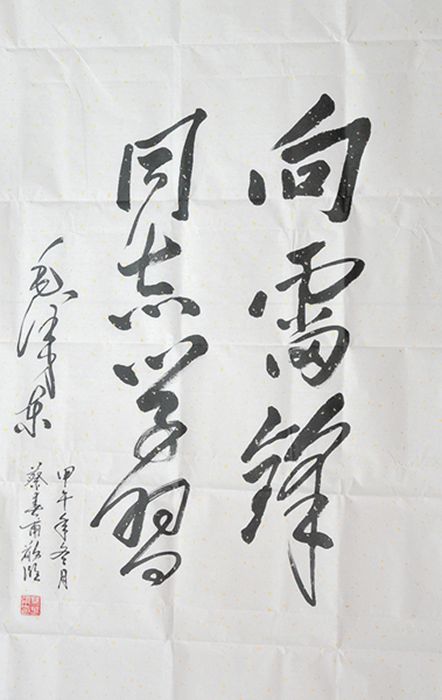 向雷锋
同志学习
毛泽东
甲午年冬月
蔡春甫敬临